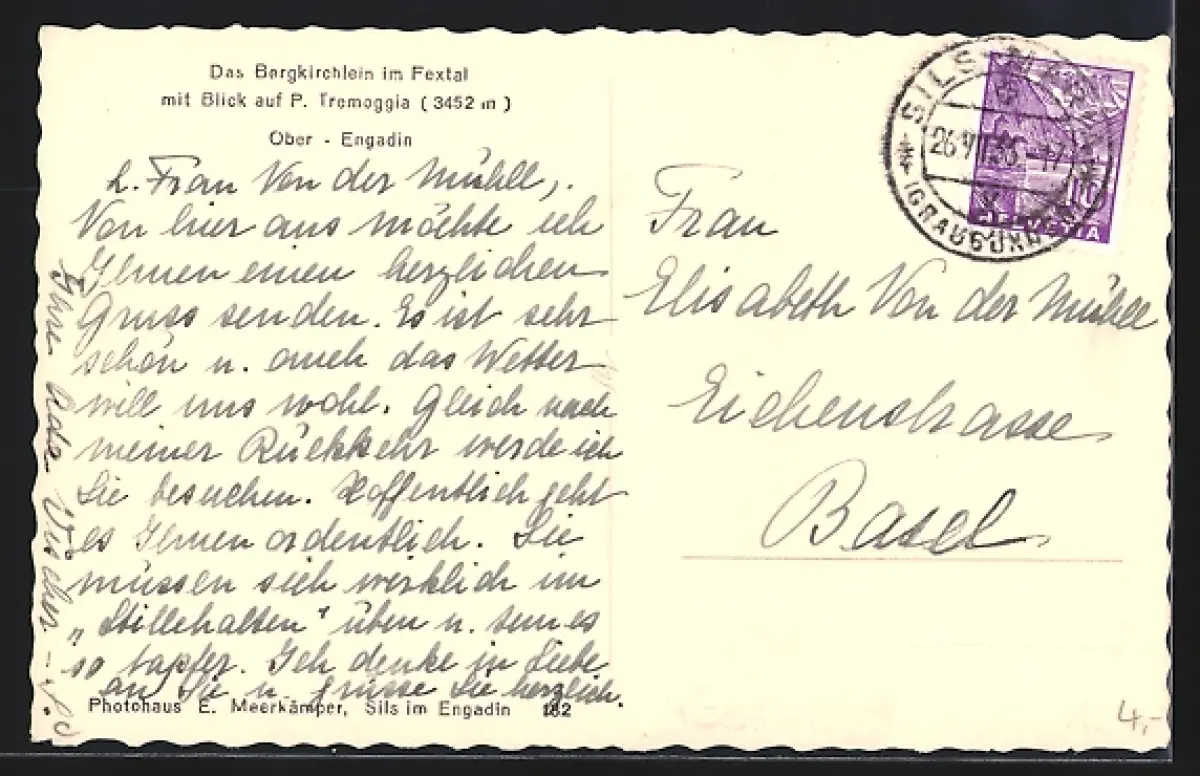 Das Bergkirchlein im Fextal
mit Blick auf P. Tremoggia (3452 m)
Ober - Engadin
L. Frau Von der Mühll,
Von hier aus möchte ich
Ihnen einen herzlichen
Gruss senden. Es ist sehr
schön u. auch das Wetter
will uns wohl. Gleich nach
meiner Rückkehr werde ich
Sie besuchen. Hoffentlich geht
es Ihnen ordentlich. Sie
müssen sich wirklich im
„Stillehalten" üben u. tun es
so tapfer. Ich denke in Liebe
an Sie u. grüsse Sie herzlich.
Ihre Ada Vischer.
Photohaus E. Meerkämper, Sils im Engadin 182
SILS
(GRAUBÜNDEN)
HELVETIA
10
Frau
Elisabeth Von der Mühll
Eichenstrasse
Basel
4,-